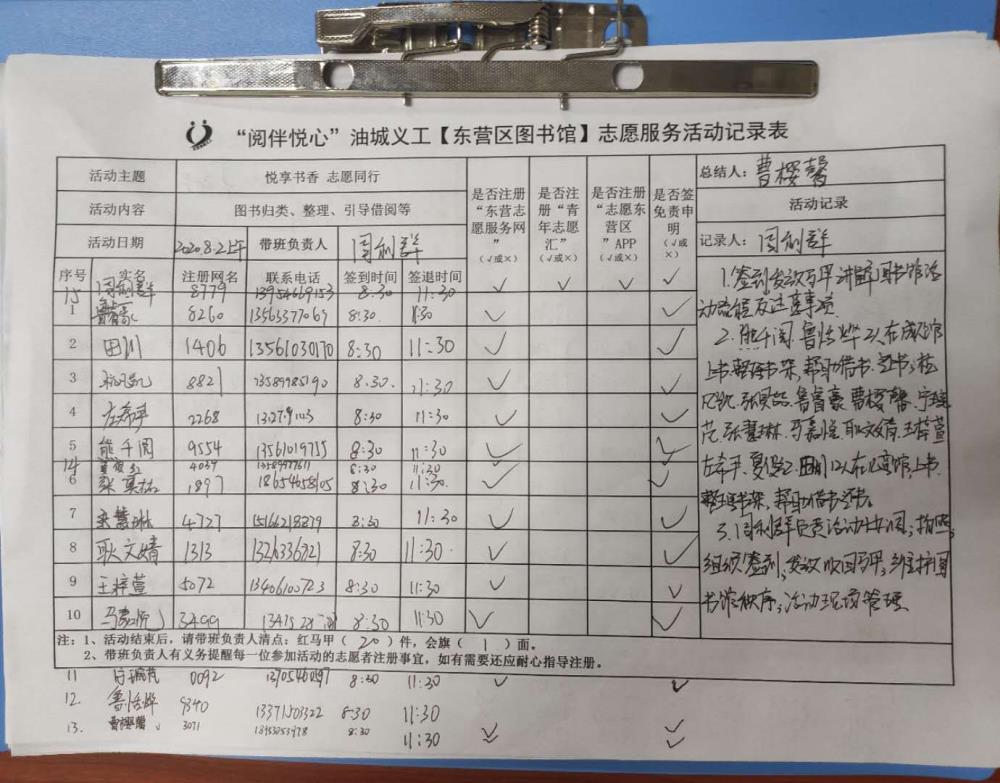 “阅伴悦心”油城义工【东营区图书馆】志愿服务活动记录表
活动主题 悦享书香 志愿同行
是否注册“东营志愿服务网”(√或×)
是否注册“青年志愿汇”(√或×)
是否注册“志愿东营区”APP(√或×)
是否签免责申明(√或×)
总结人：曹樱馨
活动内容 图书归类、整理、引导借阅等
活动记录
活动日期 2020.8.2上午 带班负责人 周利群
记录人：周利群
序号 实名 注册网名 联系电话 签到时间 签退时间
15 周利群 8779 13954669153 8:30 11:30 ✓ ✓ ✓ ✓
1 鲁睿豪 8260 13563377069 8:30 11:30 ✓ ✓
2 田川 1406 13561030170 8:30 11:30 ✓ ✓
3 8821 8:30 11:30 ✓ ✓
4 左希平 2268 8:30 11:30 ✓ ✓
5 熊千阅 9554 13561019715 8:30 11:30 ✓ ✓
14 4039 8:30 11:30 ✓ ✓
6 1897 18654658105 8:30 11:30 ✓ ✓
7 张慧琳 4727 15166218879 8:30 11:30 ✓ ✓
8 耿文婧 1313 8:30 11:30 ✓ ✓
9 王梓萱 5072 13406100723 8:30 11:30 ✓ ✓
10 3499 8:30 11:30 ✓ ✓
1.签到发放马甲讲解图书馆活
动流程及注意事项
2.熊千阅.鲁恬烨2人在成人馆
上书.整理书架,帮助借书.还书;
鲁睿豪.曹樱馨.
张慧琳.耿文婧.王梓萱
左希平.田川12人在儿童馆上书.
整理书架,帮助借书还书。
3.周利群负责活动中拍照,
组织签到;发放收回马甲;维护图
书馆秩序;活动现场管理.
注：1、活动结束后，请带班负责人清点：红马甲（20）件，会旗（1）面。
2、带班负责人有义务提醒每一位参加活动的志愿者注册事宜，如有需要还应耐心指导注册。
11 0092 8:30 11:30 ✓ ✓
12. 鲁恬烨 9340 13371503322 8:30 11:30 ✓ ✓
13. 曹樱馨 3071 8:30 11:30 ✓ ✓